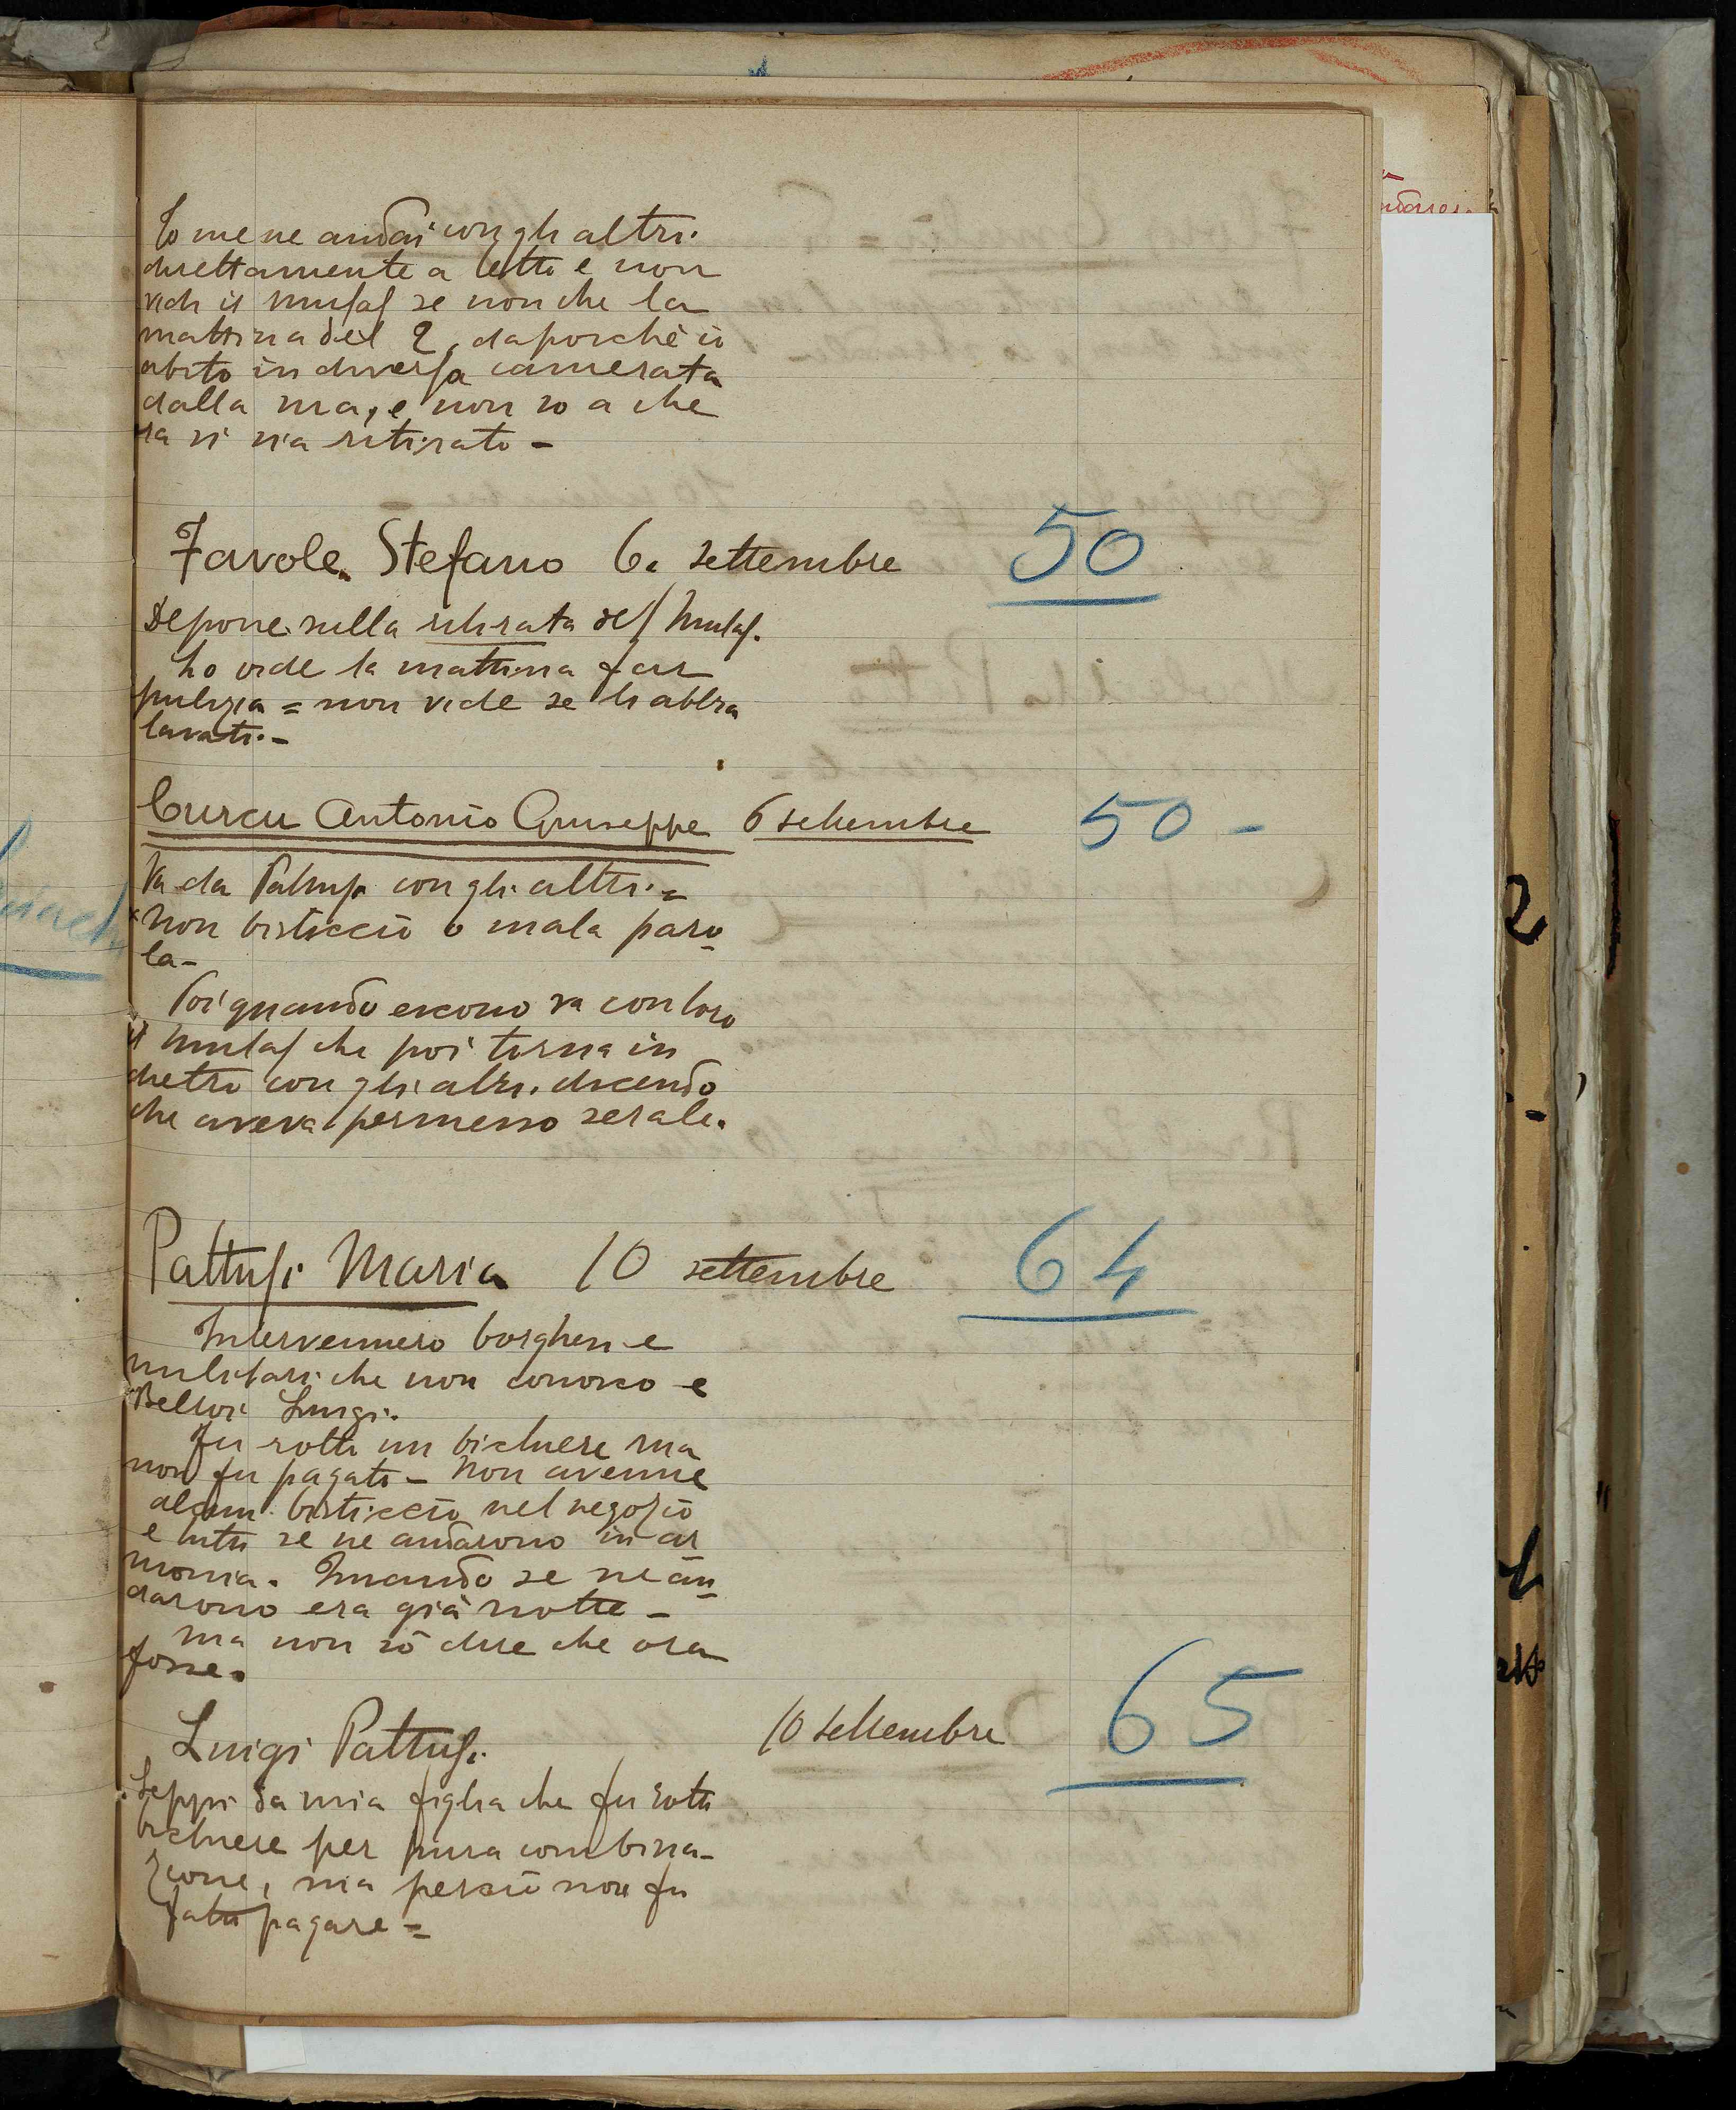 Io me ne andai con gli altri
direttamente a letto e non
vidi il Mulas se non che la
mattina del 2, dapoichè io
abito in diversa camerata
dalla sua, e non so a che
ora si sia ritirato -
Favole Stefano 6. settembre 50
Depone sulla ritirata del Mulas.
Lo vide la mattina far
pulizia = non vide se li abbia
lavati. -
Curcu Antonio Giuseppe 6 settembre 50 -
Va da Pattusi con gli altri. =
Non bisticcio o mala paro
la -
Poi quando escono va con loro
il Mulas che poi torna in
dietro con gli altri. dicendo
che aveva permesso serale.
Pattusi Maria 10 settembre 64
Intervennero borghesi e
militari che non conosco e
Luigi.
Fu rotto un bicchiere ma
non fu pagato - Non avenne
alcun bisticcio nel negozio
e tutti se ne andarono in ar
monia. Quando se ne an
darono era già notte -
ma non sò dire che ora
fosse.
Luigi Pattusi 10 settembre 65
Seppi da mia figlia che fu rotto
bicchiere per pura combina-
zione, ma perciò non fu
fatto pagare =